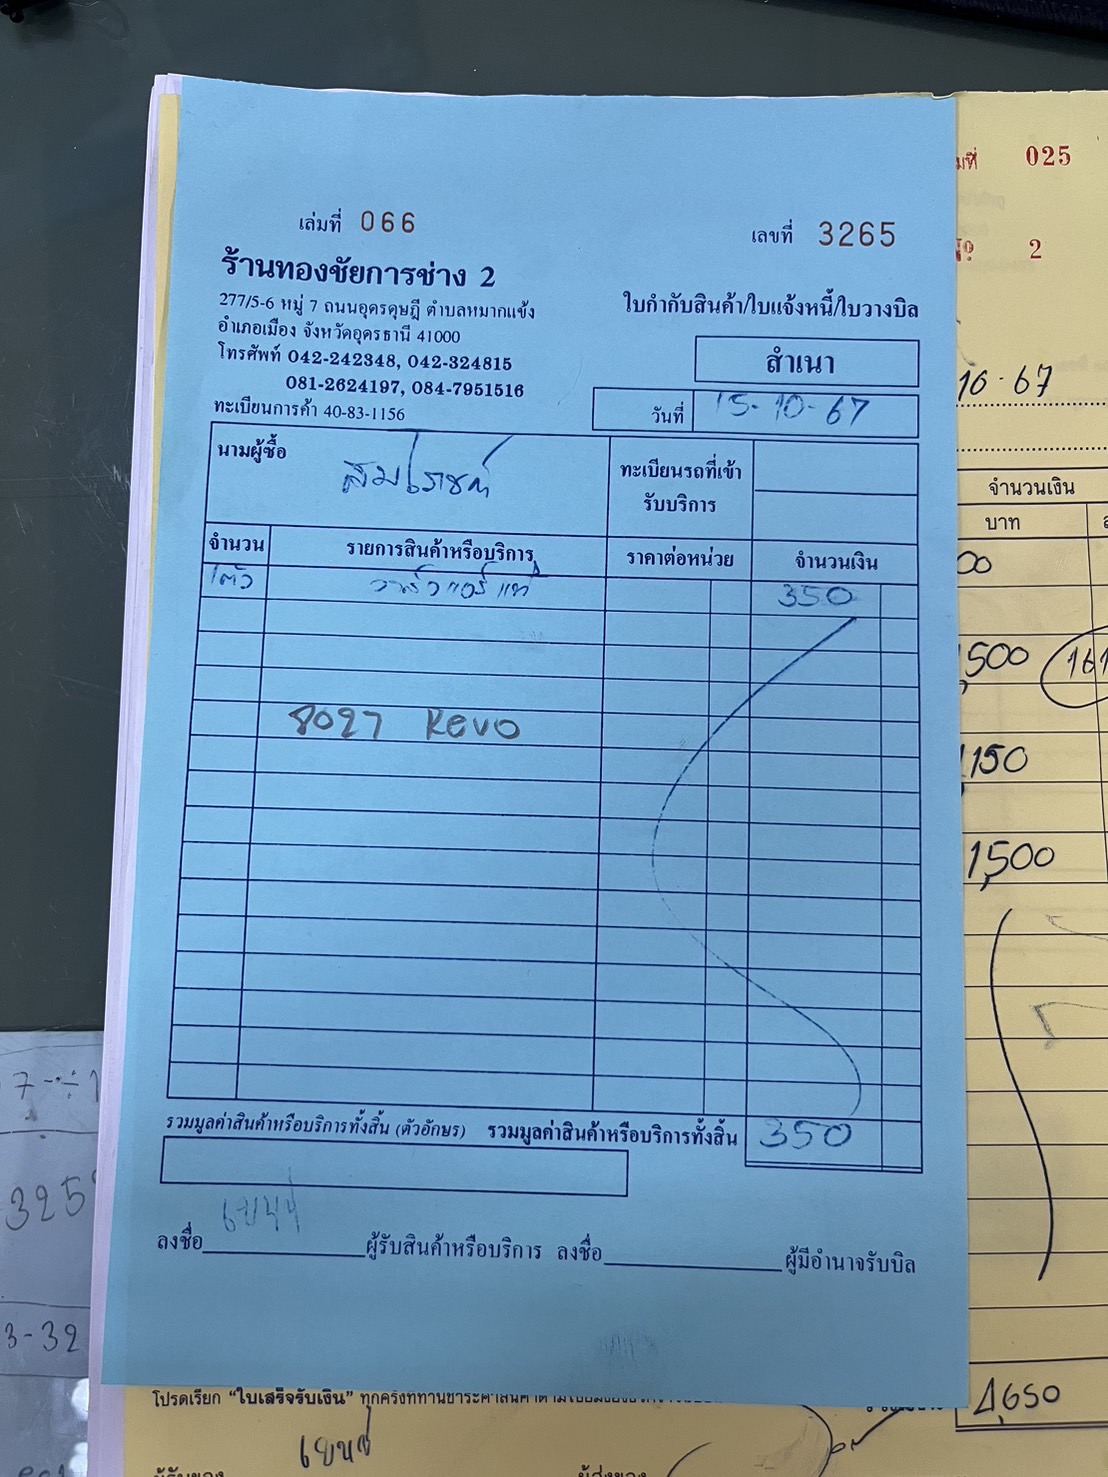 เล่มที่ 066
เลขที่ 3265
ร้านทองชัยการช่าง 2
277/5-6 หมู่ 7 ถนนอุดรดุษฎี ตำบลหมากแข้ง
อำเภอเมือง จังหวัดอุดรธานี 41000
โทรศัพท์ 042-242348, 042-324815
081-2624197, 084-7951516
ทะเบียนการค้า 40-83-1156
ใบกำกับสินค้า/ใบแจ้งหนี้/ใบวางบิล
สำเนา
วันที่ 15-10-67
นามผู้ซื้อ
ทะเบียนรถที่เข้า
รับบริการ
จำนวน รายการสินค้าหรือบริการ ราคาต่อหน่วย จำนวนเงิน
1 ตัว วาล์วแอร์แท้ 350
8027 Revo
รวมมูลค่าสินค้าหรือบริการทั้งสิ้น (ตัวอักษร) รวมมูลค่าสินค้าหรือบริการทั้งสิ้น 350
ลงชื่อ ผู้รับสินค้าหรือบริการ ลงชื่อ ผู้มีอำนาจรับบิล
025
2
10-67
จำนวนเงิน
บาท
00
500
150
1,500
โปรดเรียก “ใบเสร็จรับเงิน” ทุกครั้งที่ท่านชำระค่าสินค้า
4,650
325
3-32